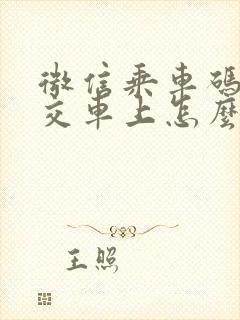 微信乘車碼
交車上怎麼
王照